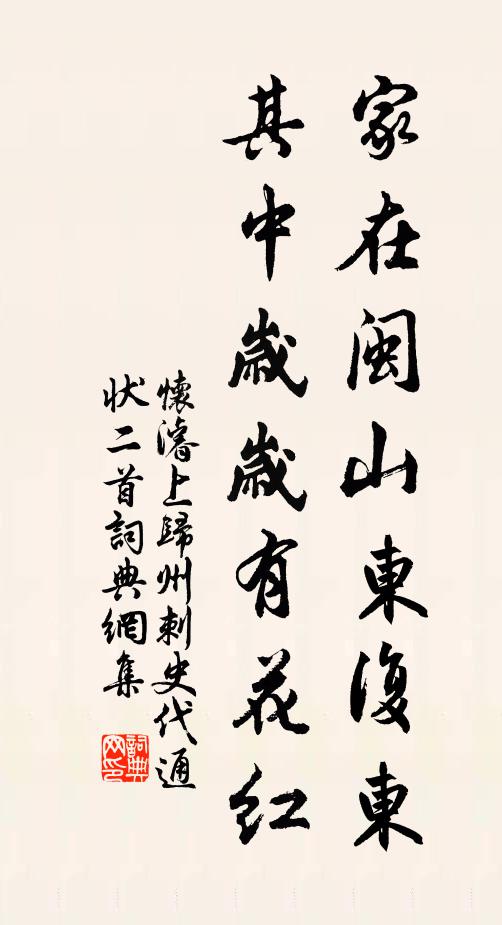 家在閩山東復東
其中歲歲有花紅
懷濬上歸州刺史代通
狀二首詞典網集
詞典
网印